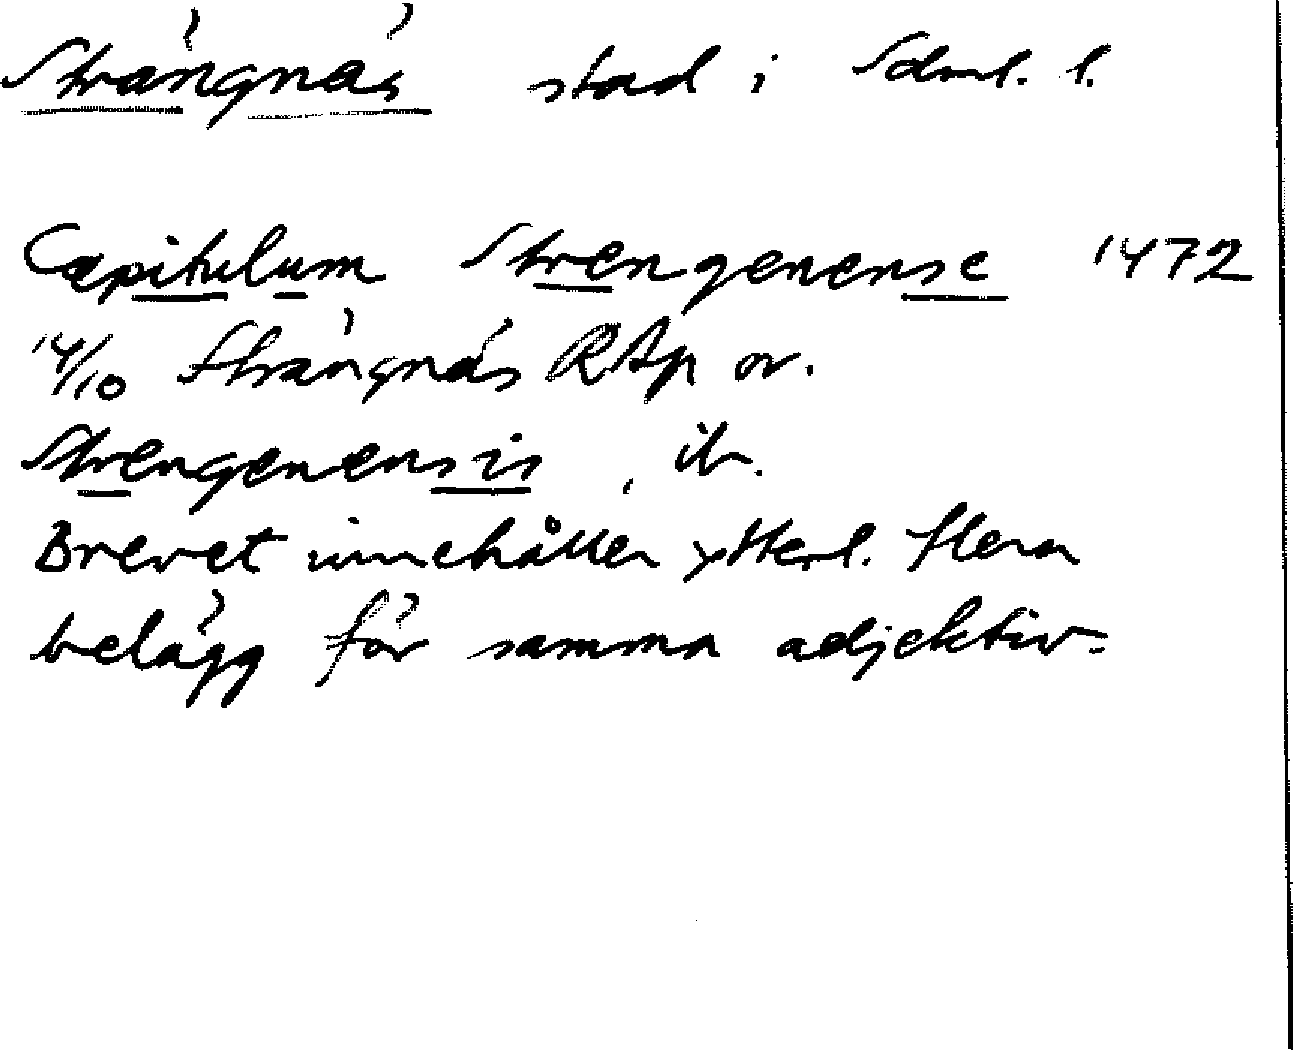 Strängnäs stad i Sdml. l.
Capitulum Strengenense 1472
14/10 Strängnäs RAp or.
Strengenensis, ib.
Brevet innehåller ytterl. flera
belägg för samma adjektiv.